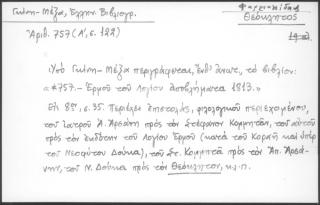 Γκίνη - Μέξα, Ἑλλην. Βιβλιογρ.
Φαρμακίδης
Θεόκλητος
Ἀριθ. 757 (Α΄, σ. 122)
Ὑπὸ Γκίνη - Μέξα περιγράφεται, ἔνθ᾽ ἀνωτ., τὸ βιβλίον:
«*757. - Ἑρμοῦ τοῦ Λογίου ἀποβλήματα 1813.»
Εἰς 8ον, σ. 35. Περιέχει ἐπιστολάς, φιλολογικοῦ περιεχομένου,
τοῦ ἰατροῦ Α. Ἀρσάνη πρὸς τὸν Στέφανον Κομμητᾶν, τοῦ αὐτοῦ
πρὸς τὸν ἐκδότην τοῦ Λογίου Ἑρμοῦ (κατὰ τοῦ Κοραῆ καὶ ὑπὲρ
τοῦ Νεοφύτου Δούκα), τοῦ Στ. Κομμητᾶ πρὸς τὸν Ἀπ. Ἀρσά-
νην, τοῦ Ν. Δούκα πρὸς τὸν Θεόκλητον, κ.λ.π.